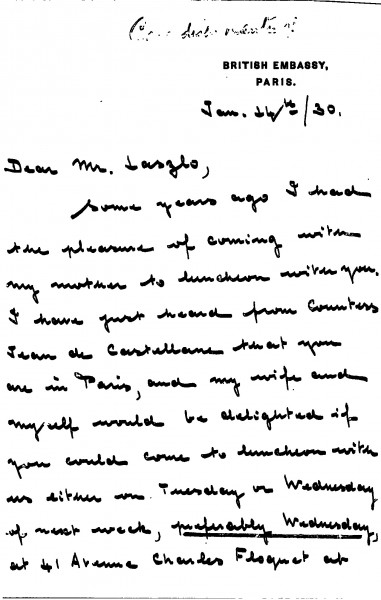 BRITISH EMBASSY,
PARIS.
Jan. 14th/30.
Dear Mr. Laszlo,
Some years ago I had
the pleasure of coming with
my mother to luncheon with you.
I have just heard from Countess
Jean de Castellane that you
are in Paris, and my wife and
myself would be delighted if
you could come to luncheon with
us either on Tuesday or Wednesday
of next week, preferably Wednesday,
at 41 Avenue Charles Floquet at